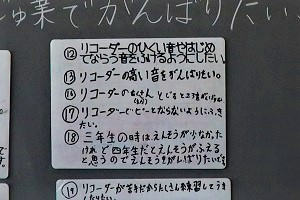 業でがんばりたい
⑫ リコーダーのひくい音やはじめ
てならう音をふけるようにしたい。
⑬ リコーダーの高い音をがんばりたい。
⑯ リコーダーの
⑰ リコーダーでピーとならないようにふき
たい。
⑱ 三年生の時は、えんそうが少なかった
けれど四年生だとえんそうがふえる
と思うのでえんそうをがんばりたいです
⑲ リコーダーが苦手だからたくさん練習してうま
くなりたい。